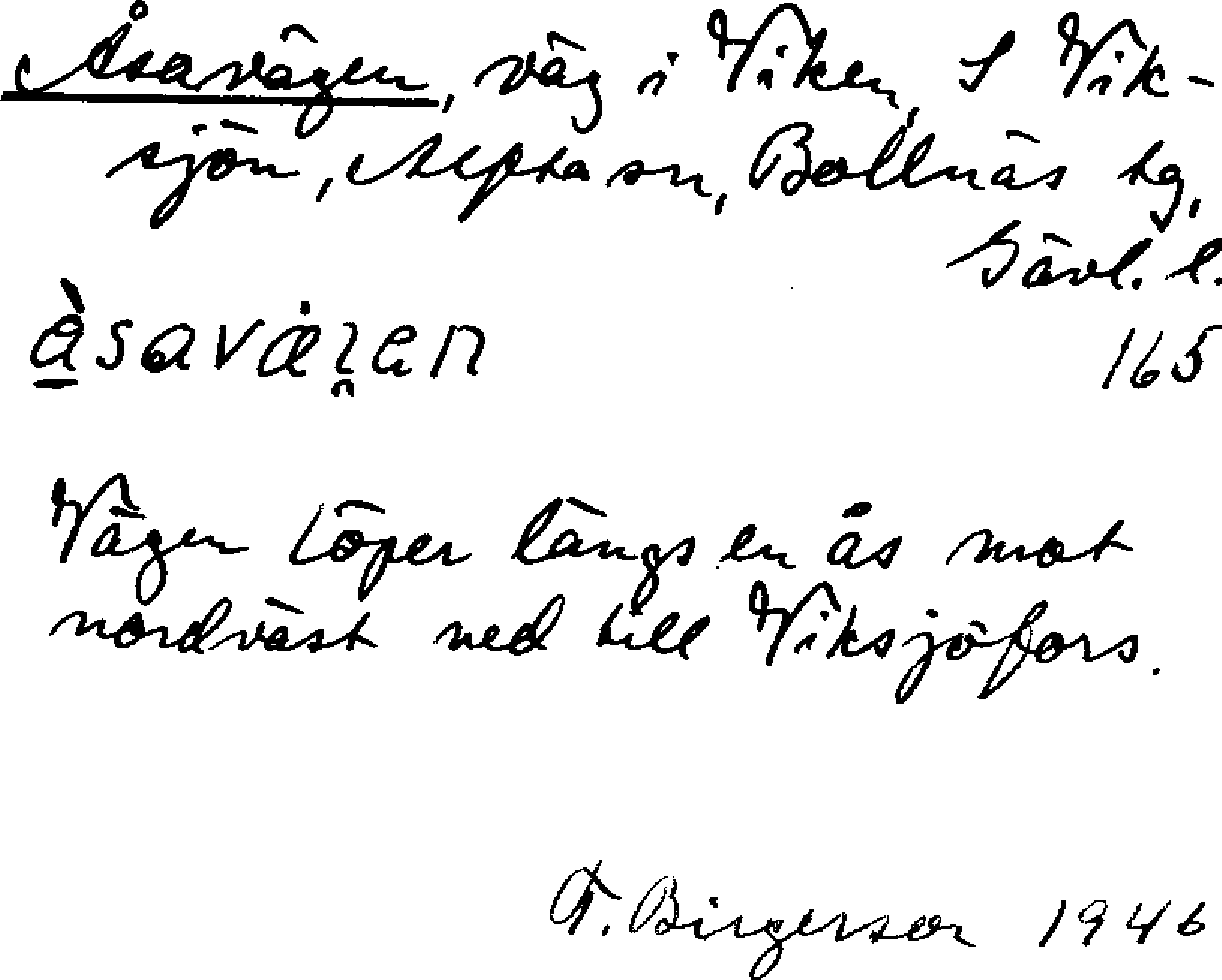 Åsavägen, väg i Viken, S Vik-
sjön, Alfta sn, Bollnäs tg,
Gävl. l.
165
Vägen löper längs en ås mot
nordväst ned till Viksjöfors.
F. Birgerson 1946